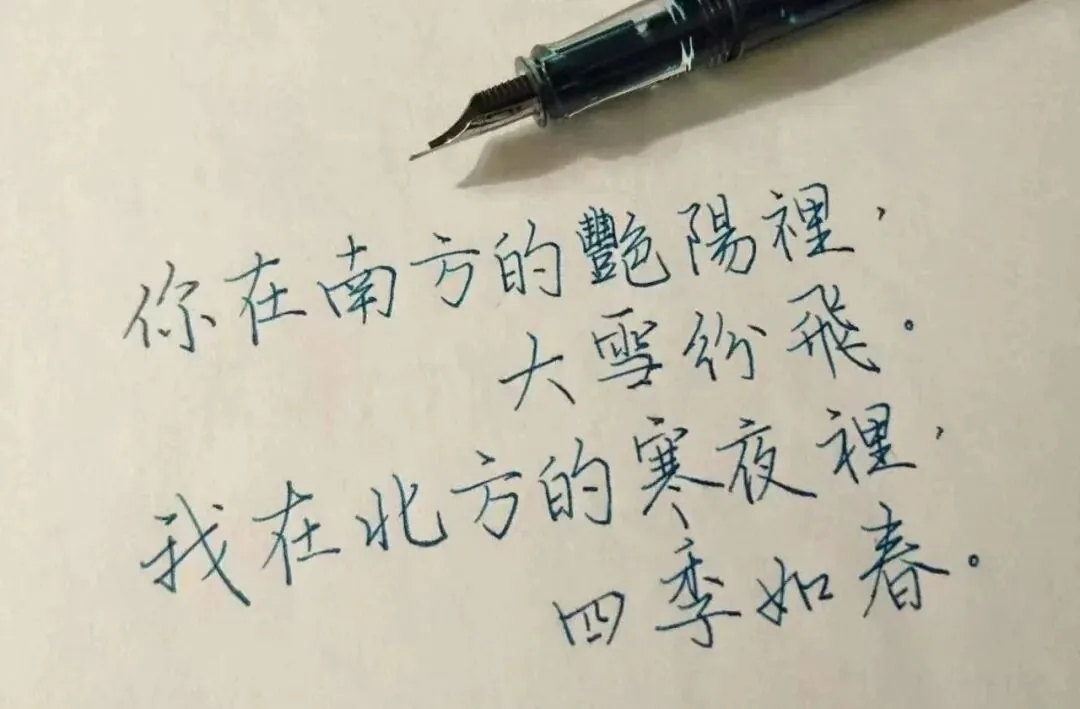 你在南方的艷陽裡，
大雪紛飛。
我在北方的寒夜裡，
四季如春。